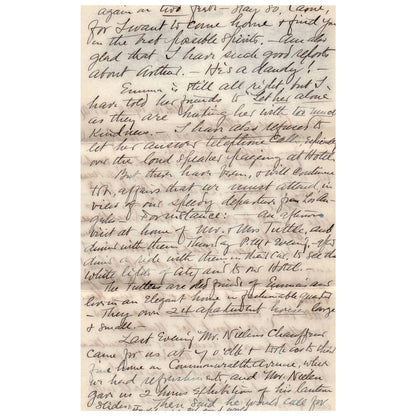 again in two
for I want to come home & find you
in the best possible spirits. - Am
glad that I have such good reports
about Arthur. - He's a dandy! -
Emma is still all right, but I
have told her friends to let her alone
as they are killing her with too much
Kindness. - I have also refused to
let her answer telephone Call, especially
over the loud speaker paging at Hotel.
But there have been, & will Continue
to be, affairs that we must attend, in
view of our speedy departure from
For instance: - an afternoon
visit at home of Mr. & Mrs Tuttle, and
dinner with them Thursday P.M. & Evening,
dinner a ride with them in their Car, to see the
white lights of City and to our Hotel. -
The Tuttles are old friends of Emma's and
live in an Elegant home in fashionable quarter
- They own 24 apartment houses large
& small.
Last Evening Mr. Nielen's Chauffeur
came for us at 7 o.clk & took us to their
fine home on Commonwealth Avenue, where
we had refreshments, and Mr. Nielen
gave us 2 hours exhibition of his lantern
slides. Then said he would call for